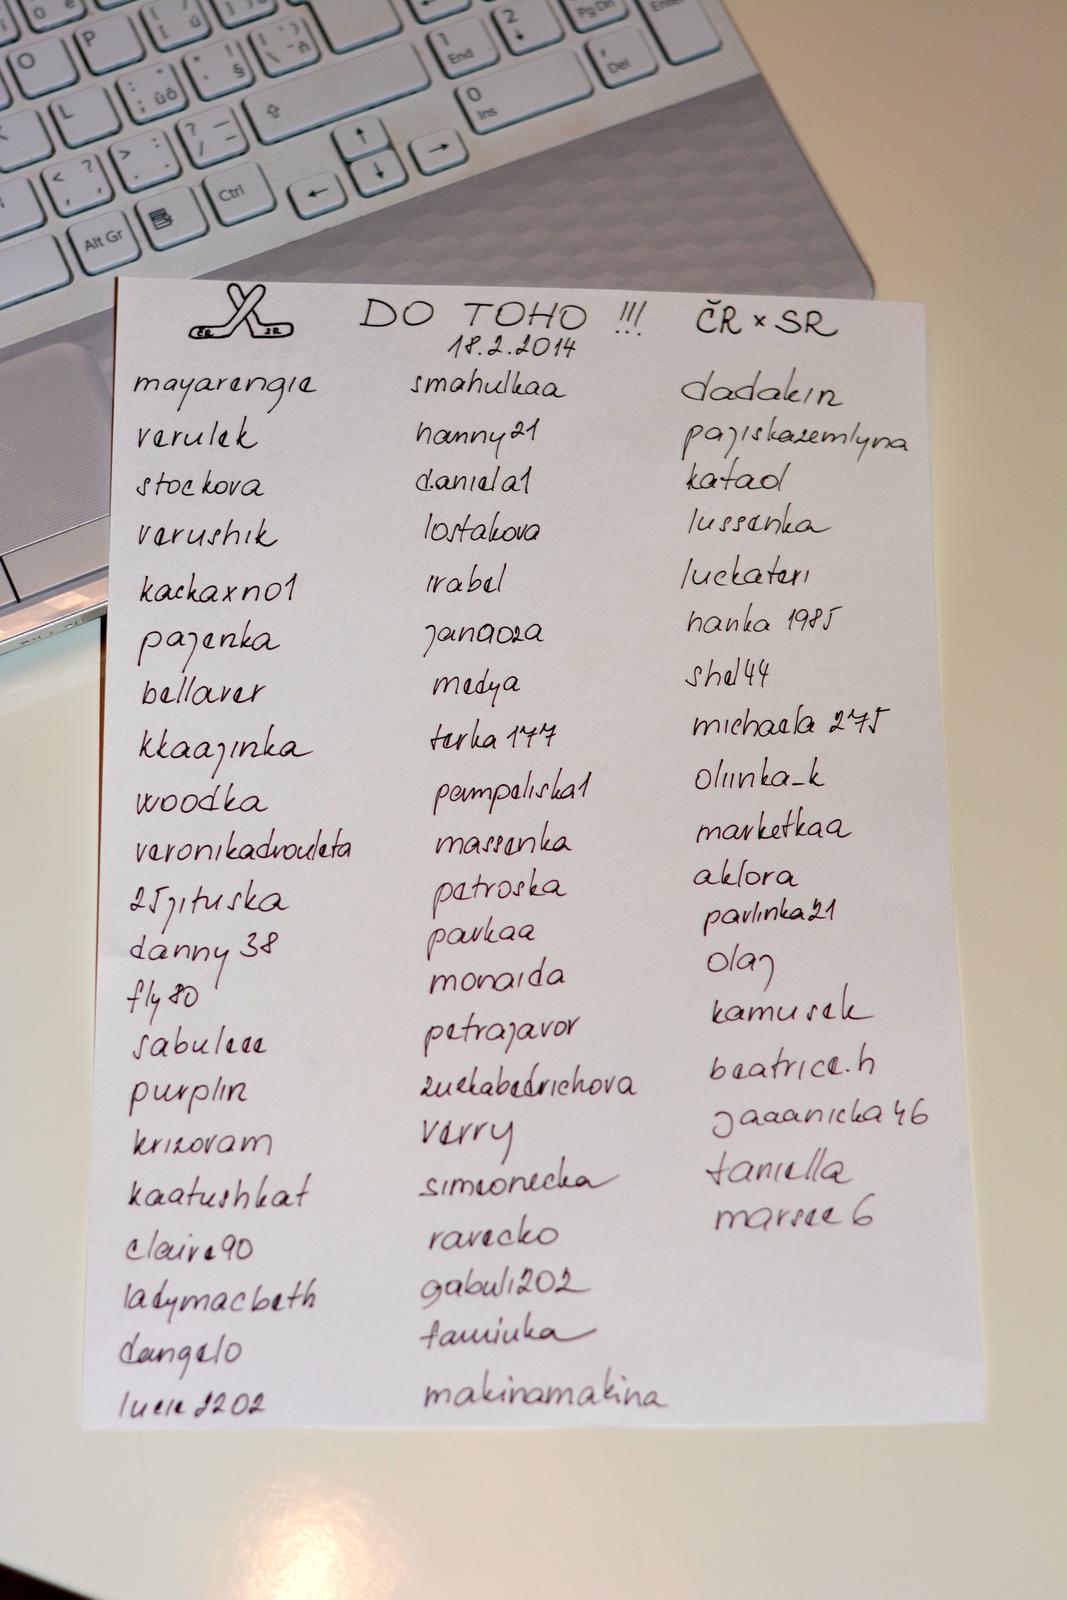 O P
L
Alt Gr
Ctrl
1 End
2
0 Ins
Del
PgDn
Enter
ČR SR
DO TOHO !!! ČR x SR
18.2.2014
mayarengie
verulek
stockova
verushik
kackaxno1
pajenka
bellaver
kkaajinka
woodka
veronikadrouleta
25jituska
danny38
fly80
sabuleee
purplin
krizovam
kaatushkat
claire90
ladymacbeth
dangelo
lucie2202
smahulkaa
hanny21
daniela1
lostakova
irabel
janaoza
medya
terka177
pampeliska1
massenka
petroska
parkaa
monaida
petrajavor
zuckabedrichova
verry
simeonecka
ravecko
gabuli202
taminka
makinamakina
dadakin
pajiskazemlyna
katad
lussenka
luckateri
hanka 1985
shel44
michaela 275
oliinka_k
marketkaa
aklora
pavlinka21
olaj
kamusek
beatrice.h
jaaanicka46
taniella
marsee6